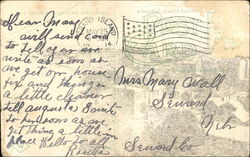 Dear Mary
will send card
to tell you we
write as soon as
we get our house
fixed and things in
a little better
tell Augusta I write
to her soon as we
get thing a little in
place hello to all
Rosetta
ISLAND
MAY
Miss Mary Wall
Seward
Neb
Seward Co.